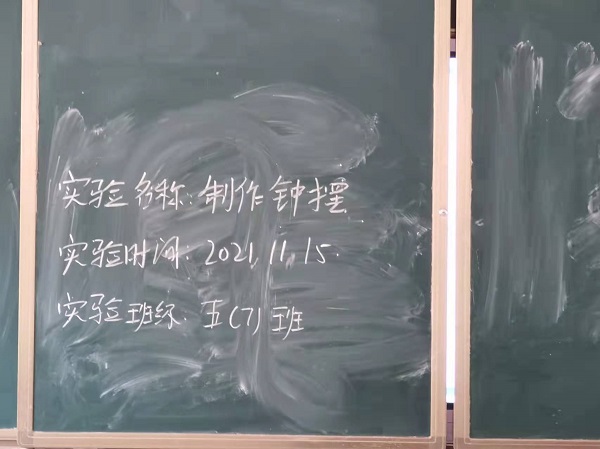 实验名称:制作钟摆
实验时间:2021.11.15.
实验班级:五(7)班